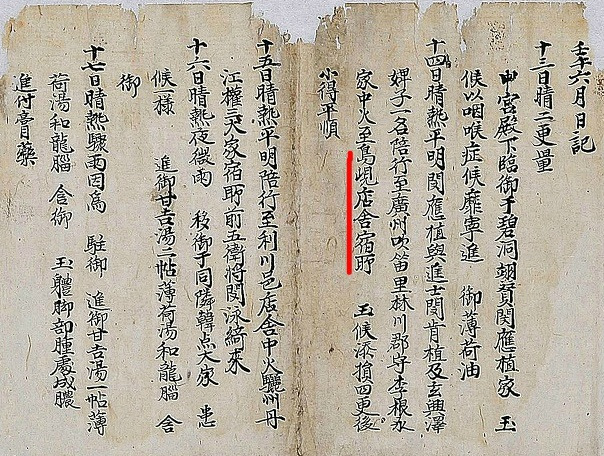 壬午六月日記
十三日晴二更量
中宮殿下臨御于碧洞翊贊閔應植家 玉
候以咽喉症候靡寧進 御薄荷油
十四日晴熱平明閔應植與進士閔肯植及玄興澤
婢子一名陪行至廣州吹笛里林川郡守李根永
家中火至島峴店舍宿所 玉候添損四更後
小得平順
十五日晴熱平明陪行至利川邑店舍中火驪州丹
江權三大家宿所前五衛將閔泳綺來
十六日晴熱夜微雨 移御于同隣韓点大家 患
候一樣 進御甘吉湯二帖薄荷湯和龍腦 含
御
十七日晴熱驟雨因爲 駐御 進御甘吉湯一帖薄
荷湯和龍腦 含御 玉體脚部腫處成膿
進付膏藥